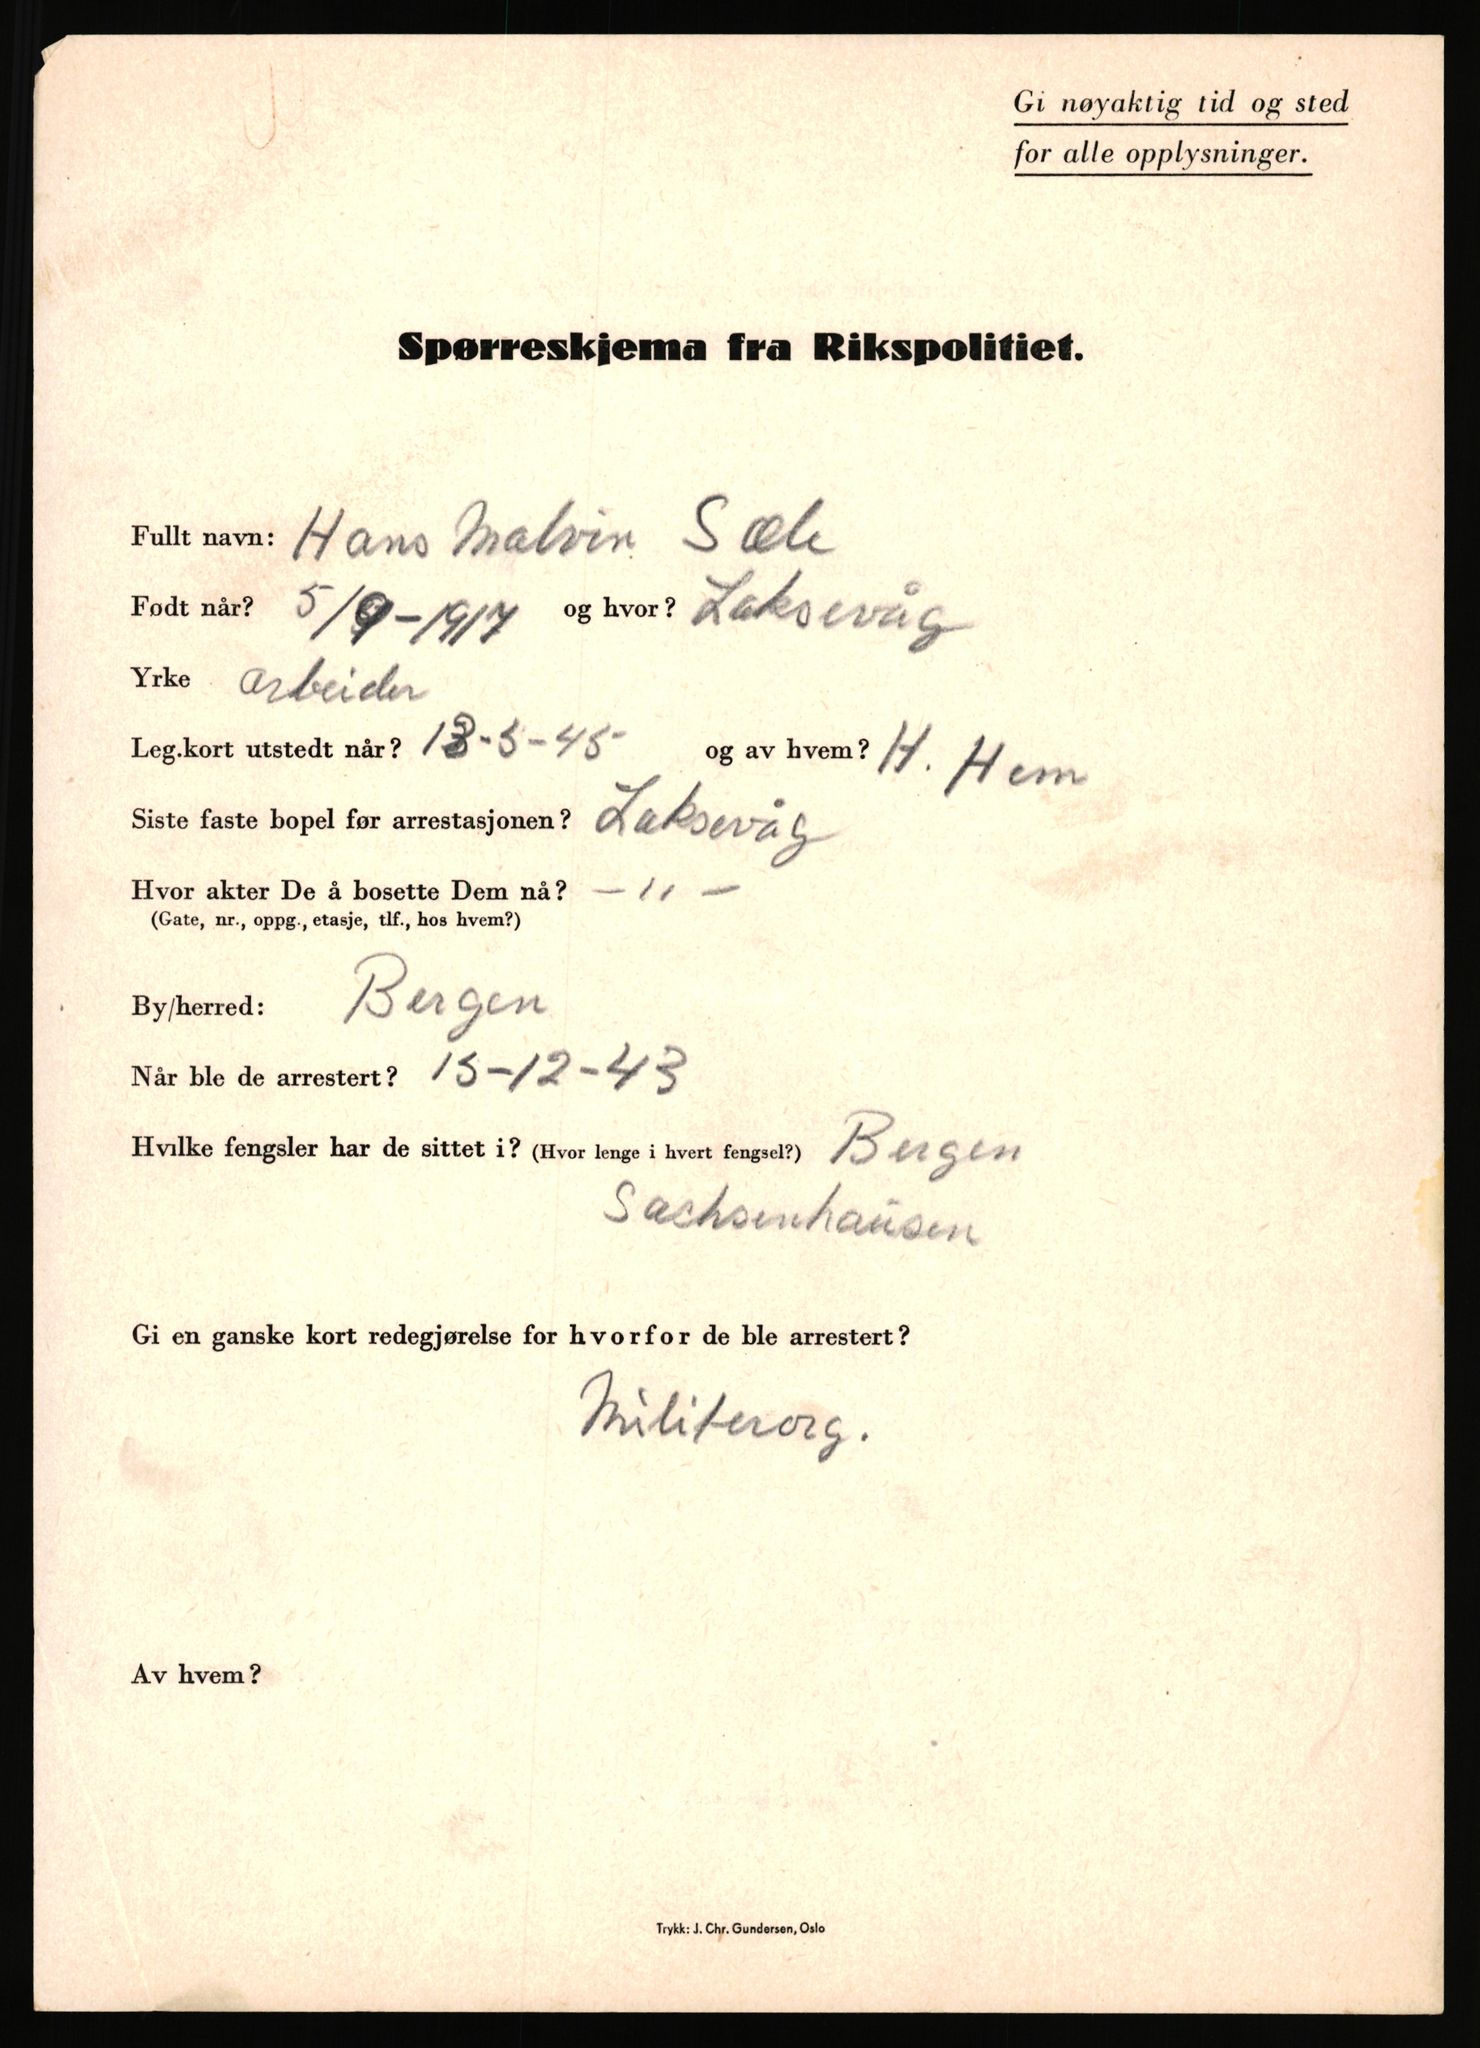 Gi nøyaktig tid og sted
for alle opplysninger.
Spørreskjema fra Rikspolitiet.
Fullt navn: Hans Malvin Sæle
Født når? 5/9-1917 og hvor? Laksevåg
Yrke arbeider
Leg.kort utstedt når? 13-5-45 og av hvem? H. Hem
Siste faste bopel før arrestasjonen? Laksevåg
Hvor akter De å bosette Dem nå? - " -
(Gate, nr., oppg., etasje, tlf., hos hvem?)
By/herred: Bergen
Når ble de arrestert? 15-12-43
Hvilke fengsler har de sittet i? (Hvor lenge i hvert fengsel?) Bergen
Sachsenhausen
Gi en ganske kort redegjørelse for hvorfor de ble arrestert?
Militerorg.
Av hvem?
Trykk: J. Chr. Gundersen, Oslo